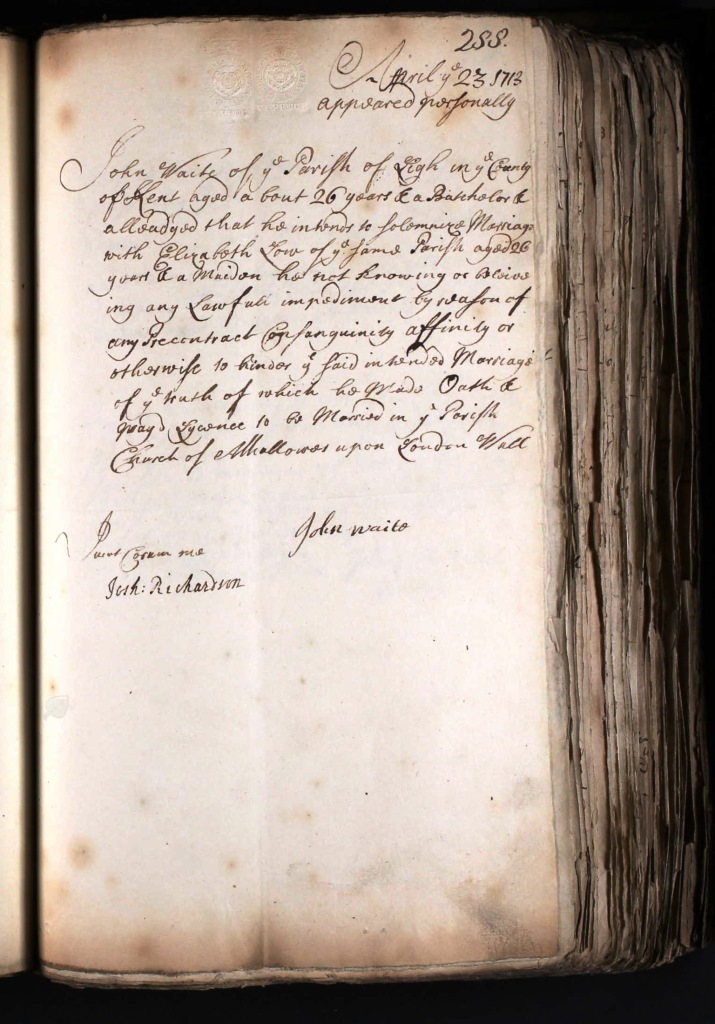 288.
April ye 23 1713
appeared personally
John Waite of ye Parish of Ligh in ye County
of Kent aged a bout 26 years & a Batchelor &
alleadged that he intends to solemnize Marriage
with Elizabeth Low of ye same Parish aged 26
years & a Maiden he not knowing or beleive
ing any Lawfull impediment by reason of
any Precontract Consanguinity affinity or
otherwise to hinder ye said intended Marriage
of ye truth of which he Made Oath &
prayd Lycence to be Married in ye Parish
Church of Allhallowes upon London Wall
John waite
Jurat Coram me
Josh: Richardson